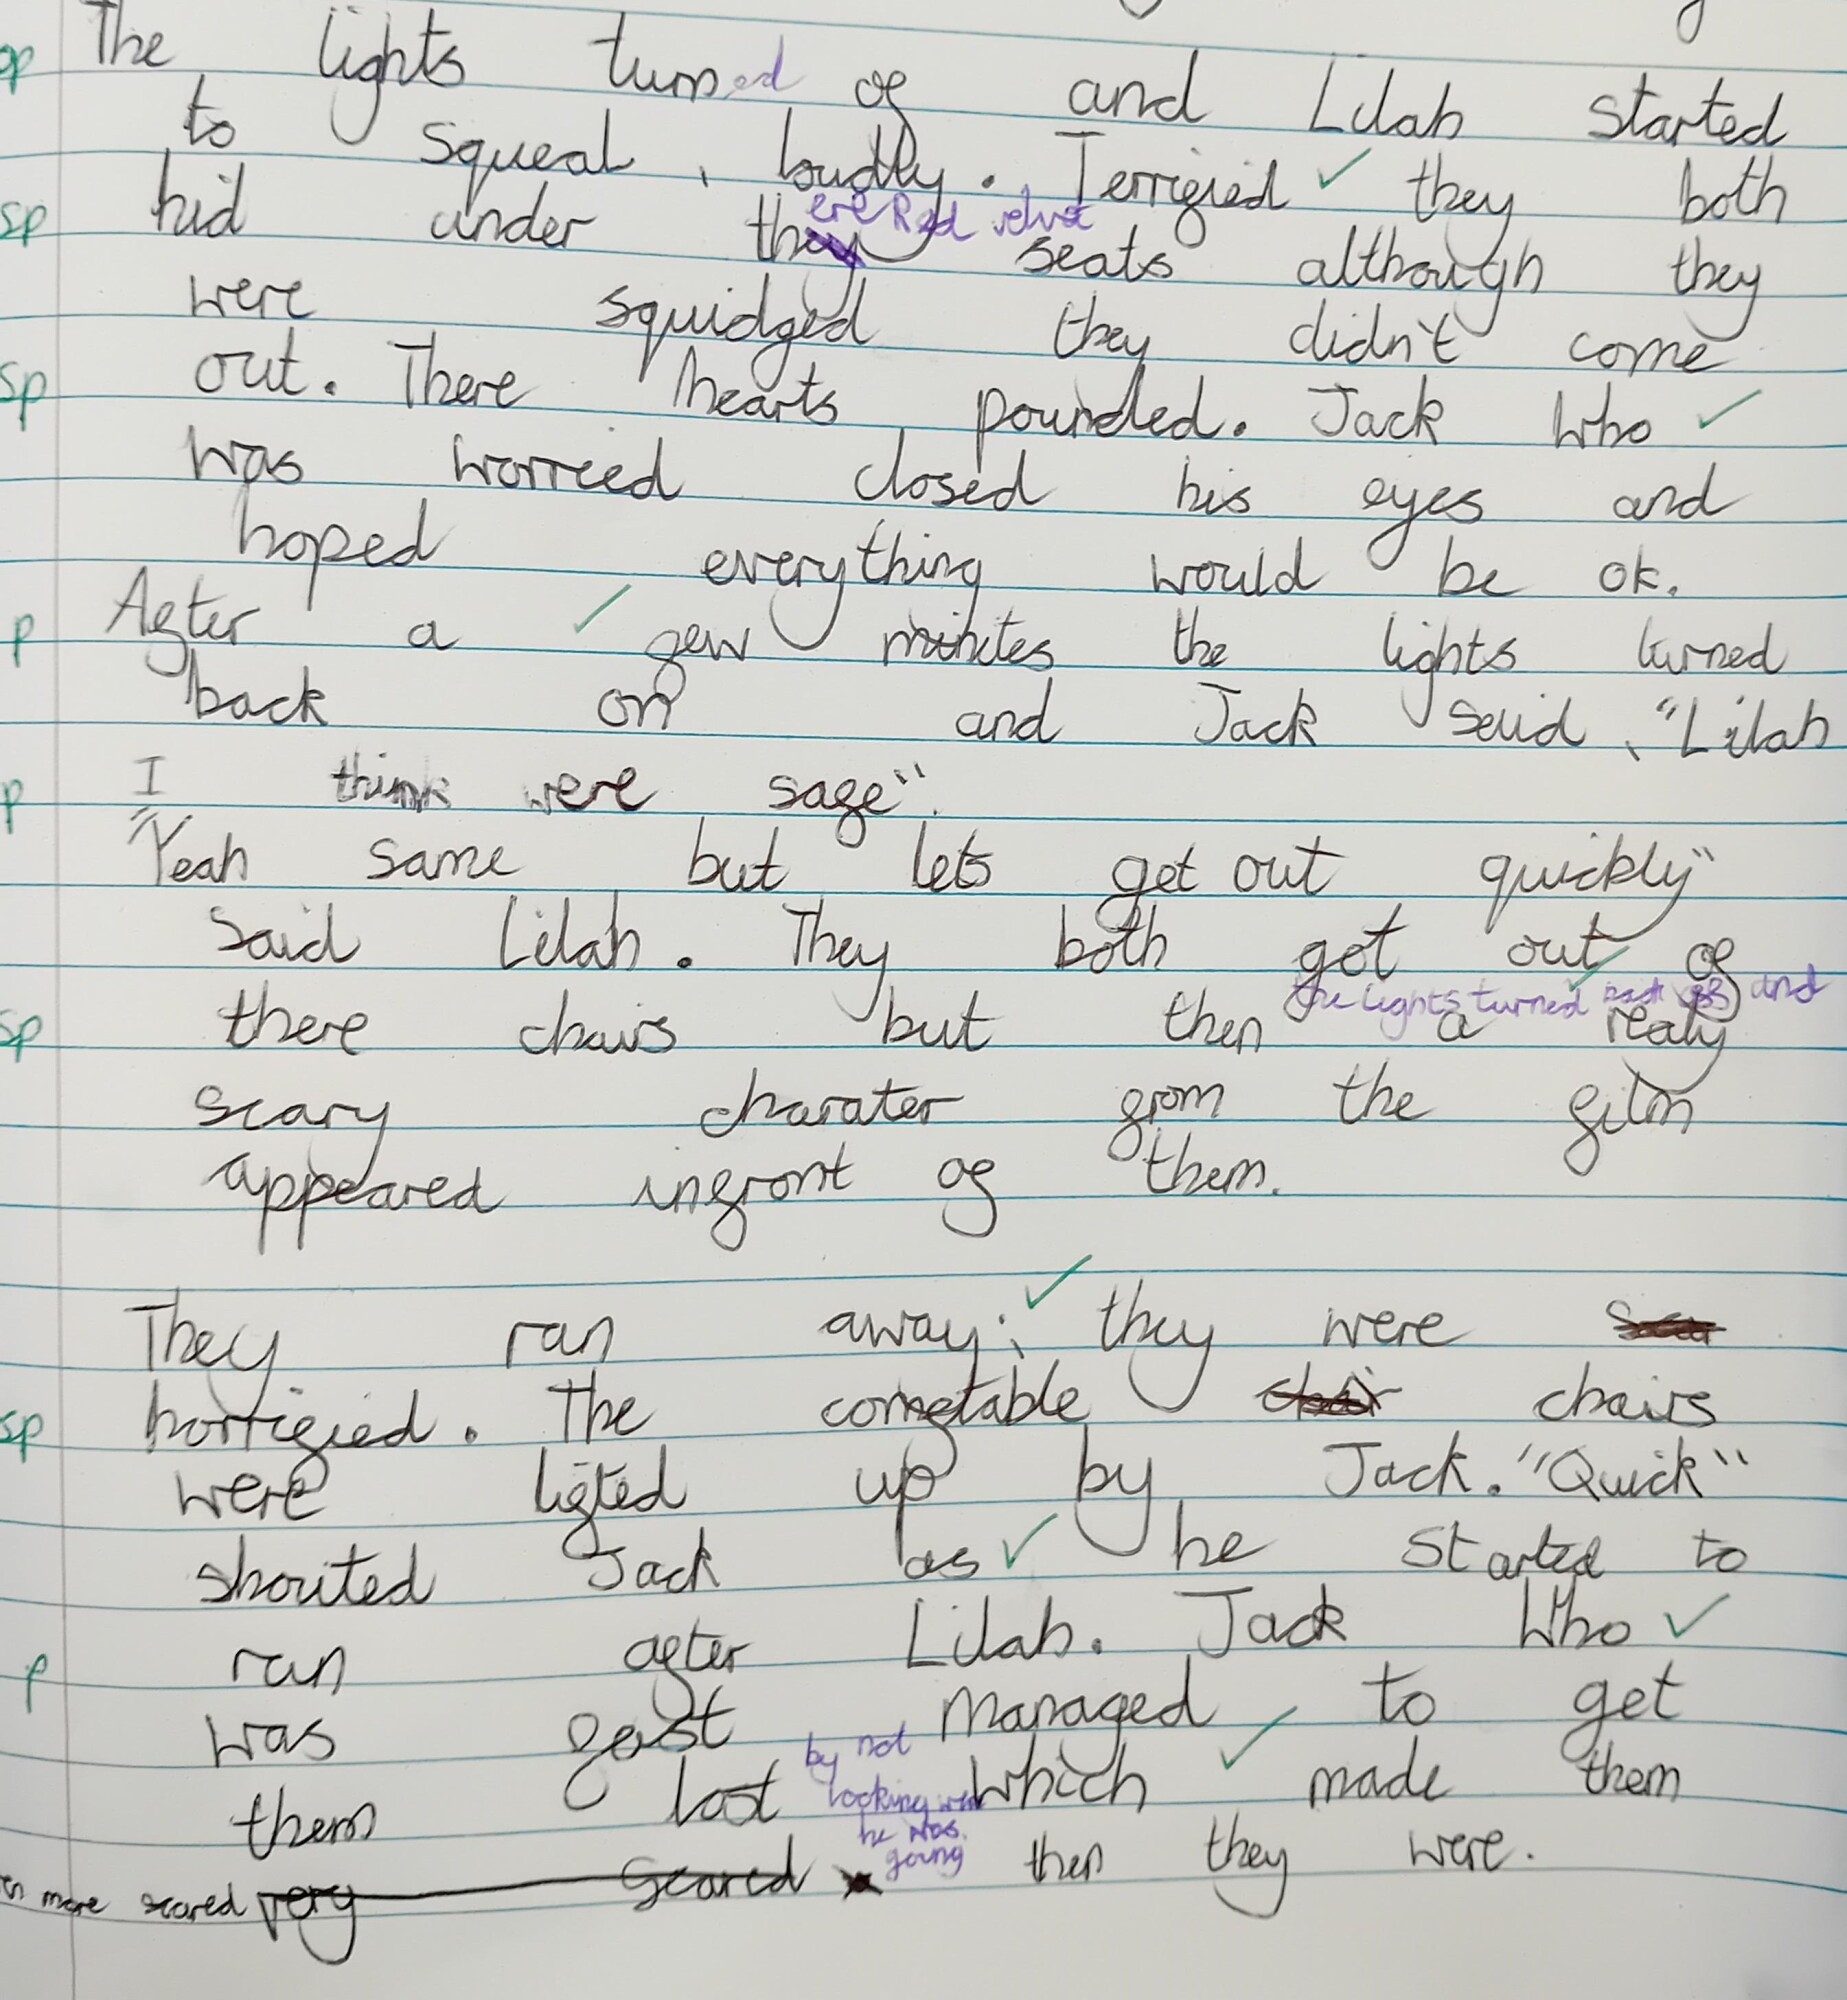 sp The lights turned of and Lilah started
to squeal, loudly. Terrified ✓ they both
sp hid under there Red velvet seats although they
were squidged they didn't come
sp out. There hearts pounded. Jack who ✓
was worried closed his eyes and
hoped everything would be ok.
p After a ✓ few minutes the lights turned
back on and Jack said, "Lilah
p I think were safe".
"Yeah same but lets get out quickly"
said Lilah. They both got out ✓ of
sp there chairs but then the lights turned back off and a realy
scary charater from the film
appeared infront of them.
They ran away; ✓ they were
sp horrified. The comftable chairs
were lifted up by Jack. "Quick"
shouted Jack as ✓ he started to
p ran after Lilah. Jack who ✓
was fast managed to get
them lost by not looking were he was going which ✓ made them
more scared very scared then they were.